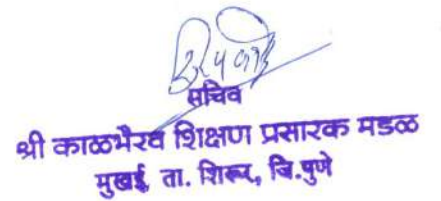 सचिव
श्री काळभैरव शिक्षण प्रसारक मडळ
मुखई, ता. शिरूर, जि.पुणे